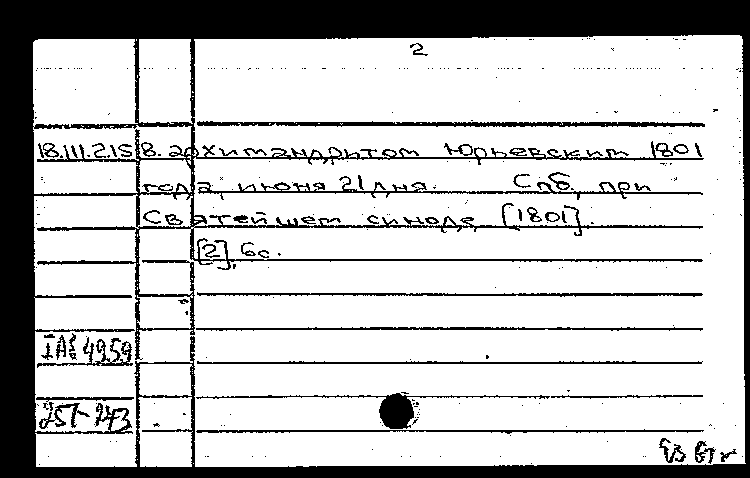 2
18.III.2.15 8. архимандритом Юрьевским 1801
года, июня 21 дня. Спб, при
Святейшем синоде, [1801].
[2], 6с.
49.59
257-243